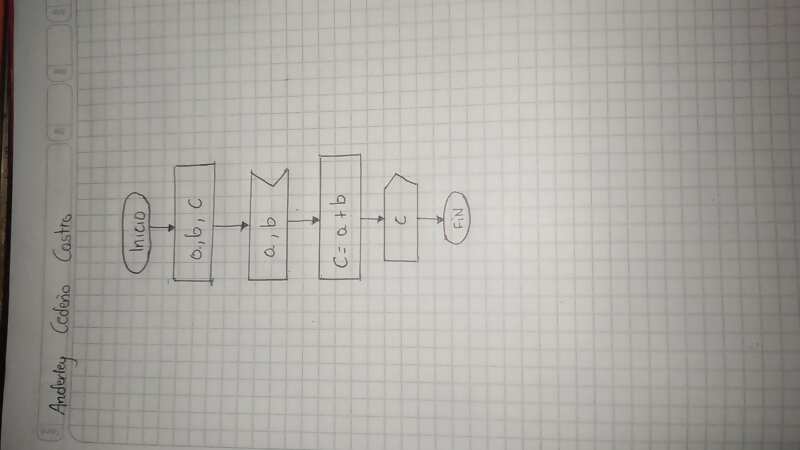 Anderley Cedeño Castro
Inicio
a, b, c
a, b
C = a + b
c
FiN